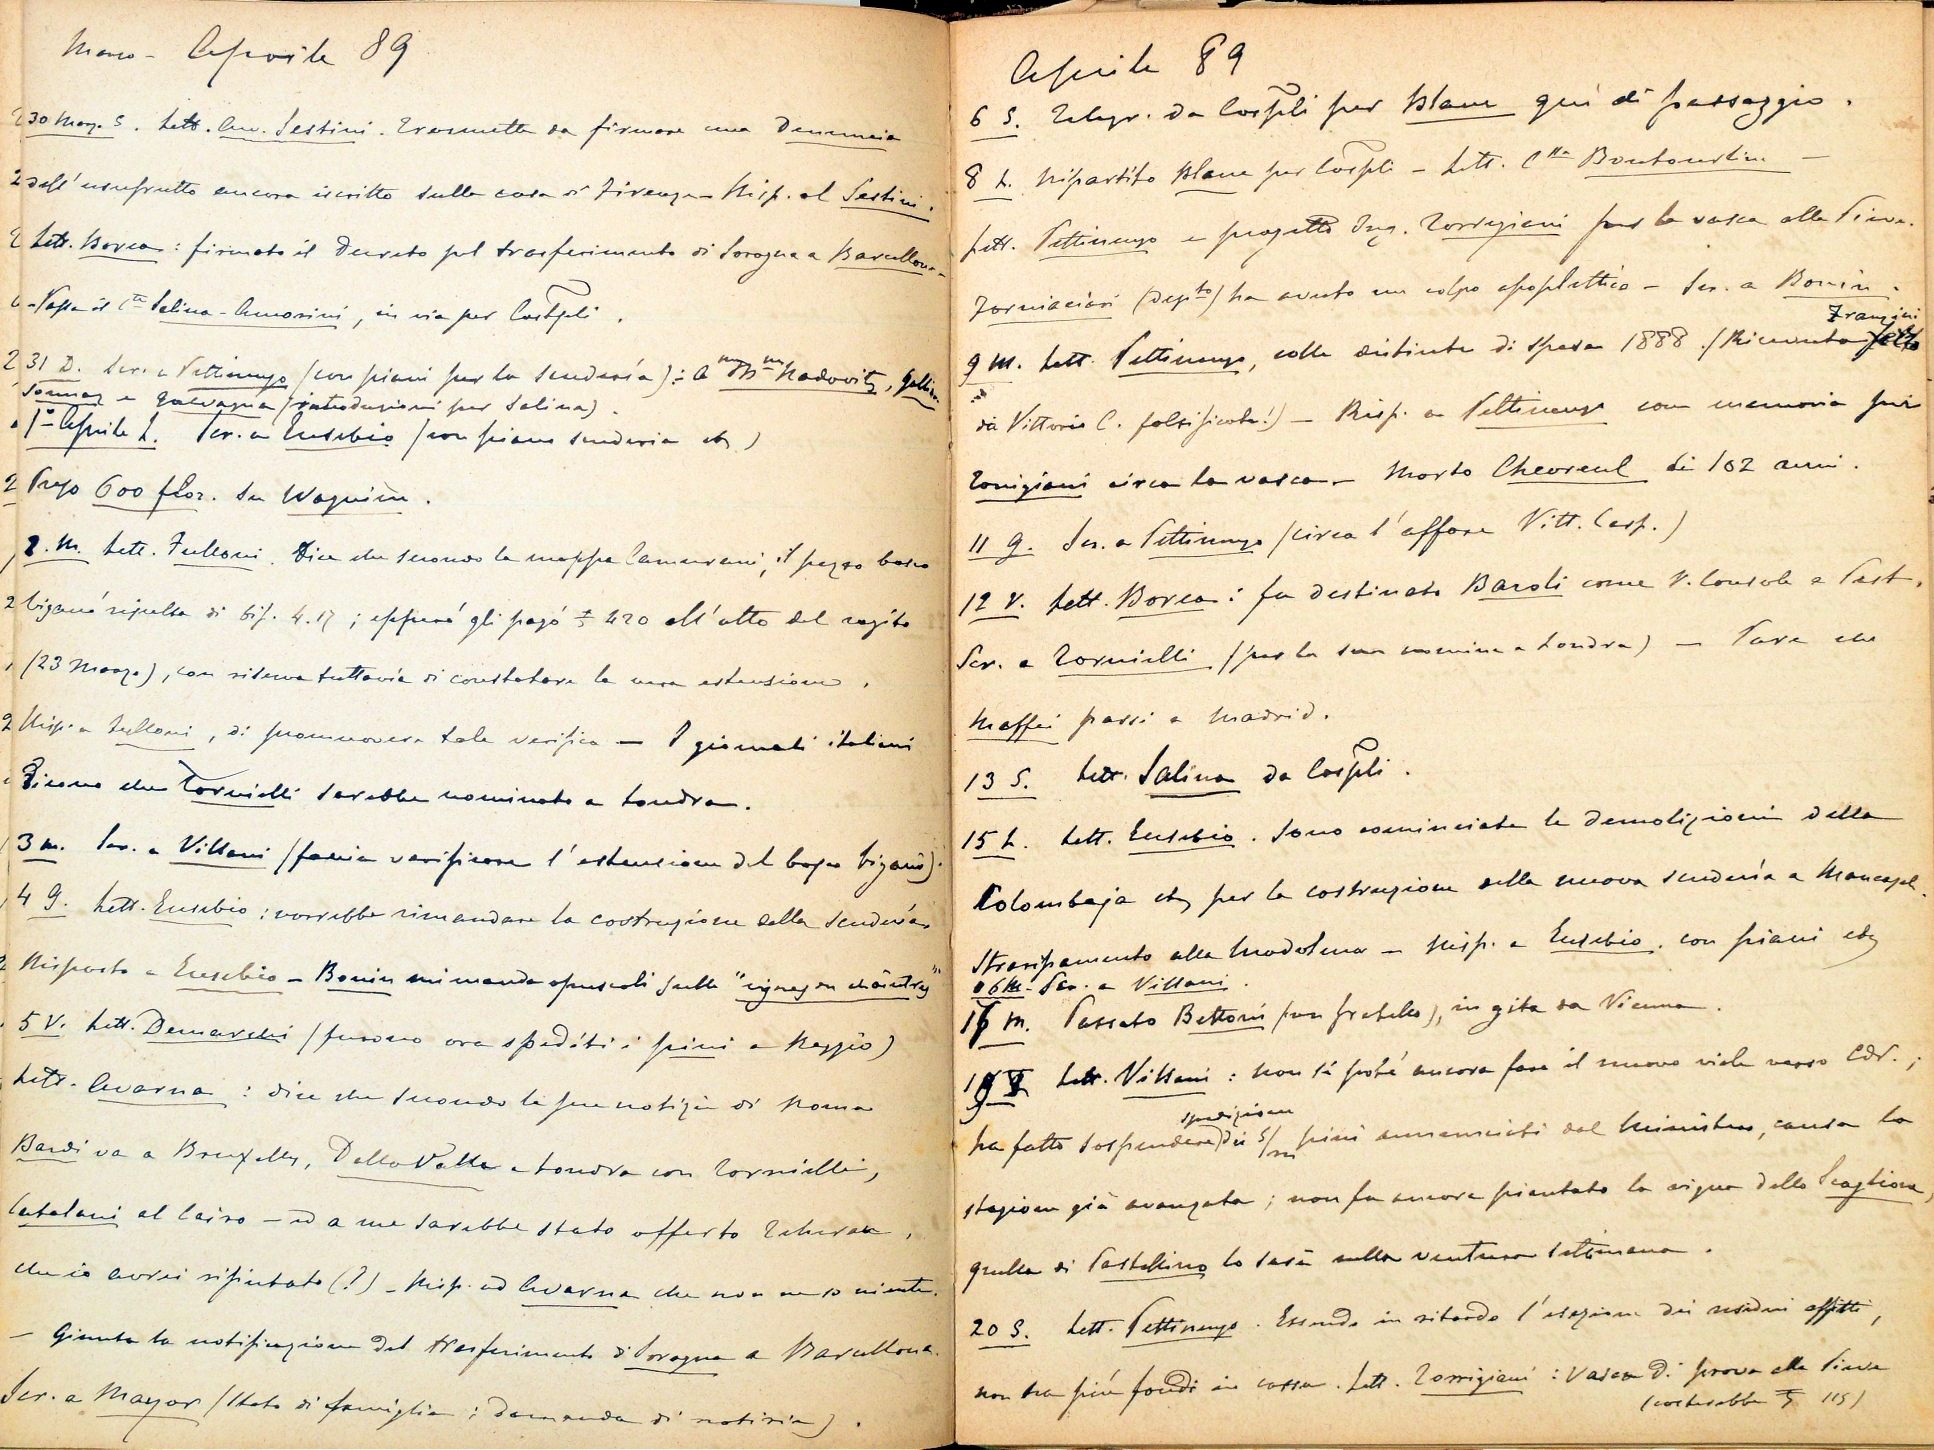 Marzo - Aprile 89
30 Marz. S. Lett. Avv. Sestini. Trasmette da firmare una Denuncia
dell'usufrutto ancora iscritto sulla casa di Firenze - Risp. al Sestini.
Lett. Borea: firmato il Decreto pel trasferimento di Soragna a Barcellona -
- Passa il Cte Salina-Amorini, in via per Costpli.
31 D. Scr. a Pettinengo (con piani per la scuderia): a Radowitz, Galli
Sonnaz e Galvagna (introduzioni per Salina).
1° Aprile L. Scr. a Eusebio (con piano scuderia etc)
Prezo 600 flor. su Wagnim.
2. M. Lett. Fulloni. Dice che secondo la mappa Camurani, il pezzo bosco
Biganò risulta di bif. 4.17; eppure gli pagò 420 all'atto del rogito
(23 Marzo), con riserva tuttavia di constatare la vera estensione.
Risp. a Fulloni, di promuovere tale verifica - I giornali italiani
Dicono che Tornielli sarebbe nominato a Londra.
3 M. Scr. a Villani (faccia verificare l'estensione del bosco Biganò).
4 G. Lett. Eusebio: vorrebbe rimandare la costruzione della scuderia
Risposto a Eusebio - Bonin mi manda opuscoli sulle "vignes en chaintres"
5 V. Lett. Demarchi (furono ora spediti i pini a Reggio)
Lett. Avarna: dice che secondo le sue notizie di Roma
Bardi va a Bruxelles, Della Valle a Londra con Tornielli,
Catalani al Cairo - ed a me sarebbe stato offerto Teheran,
che io avrei rifiutato (?) - Risp. ad Avarna che non ne so niente.
- Giunta la notificazione del trasferimento di Soragna a Barcellona.
Scr. a Mayor (Stato di famiglia; domanda di notizie).
Aprile 89
6 S. Telegr. da Costpli per Blanc qui di passaggio.
8 L. Ripartito Blanc per Costpli - Lett. Ctta Boutourline -
Lett. Pettinengo e progetto Ing. Torrigiani per la vasca alla Pieve.
Fornaciari (Depto) ha avuto un colpo apoplettico - Scr. a Bonin.
9 M. Lett. Pettinengo, colle distinte di spesa 1888. (Ricevuta Franzini
da Vittorio C. falsificata!) - Risp. a Pettinengo con memoria per
Torrigiani circa la vasca - Morto Chevreul di 102 anni.
11 G. Scr. a Pettinengo (circa l'affare Vitt. Casp.)
12 V. Lett. Borea: fu destinato Baroli come V. Console a Pest.
Scr. a Tornielli (per la sua nomina a Londra) - Pare che
Maffei passi a Madrid.
13 S. Lett. Salina da Costpli.
15 L. Lett. Eusebio. Sono cominciate le demolizioni della
Colombaja etc per la costruzione della nuova scuderia a Mancasale.
Straripamento alla Modolena - Risp. a Eusebio, con piani etc
16 M. Scr. a Villani.
17 M. Passato Bettoni (con fratello), in gita da Vienna.
19 V Lett. Villani: non si poté ancora fare il nuovo viale verso Cdr.;
ha fatto sospendere spedizione dei 5/m pini annunciati dal Ministero, causa la
stagione già avanzata; non fu ancora piantata la vigna della Scagliona,
quella di Castellino lo sarà nella ventura settimana.
20 S. Lett. Pettinengo. Essendo in ritardo l'esazione dei residui affitti,
non ha più fondi in cassa. Lett. Torrigiani: Vasca di prova alla Pieve
(costerebbe 115)